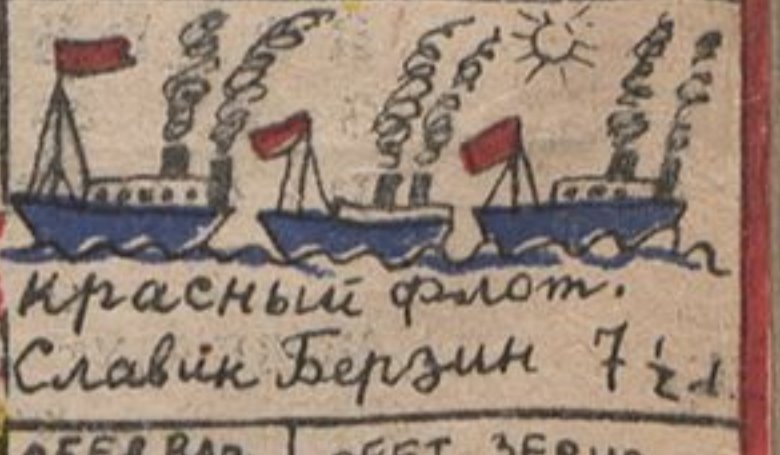 Красный флот.
Славик Берзин 7 1/2 л.